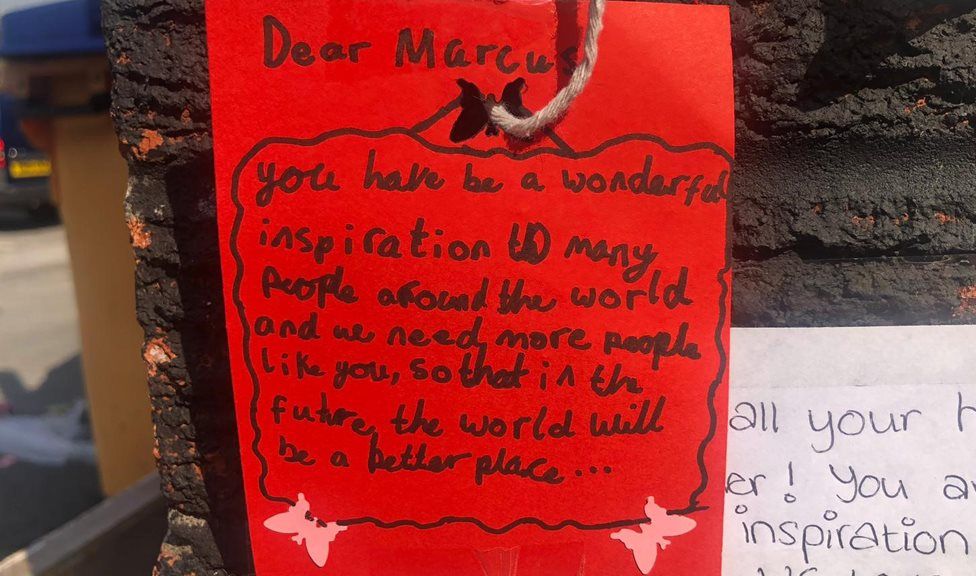 Dear Marcus
you have be a wonderful
inspiration to many
people around the world
and we need more people
like you, so that in the
future, the world will
be a better place...
all your h
er! You a
inspiration